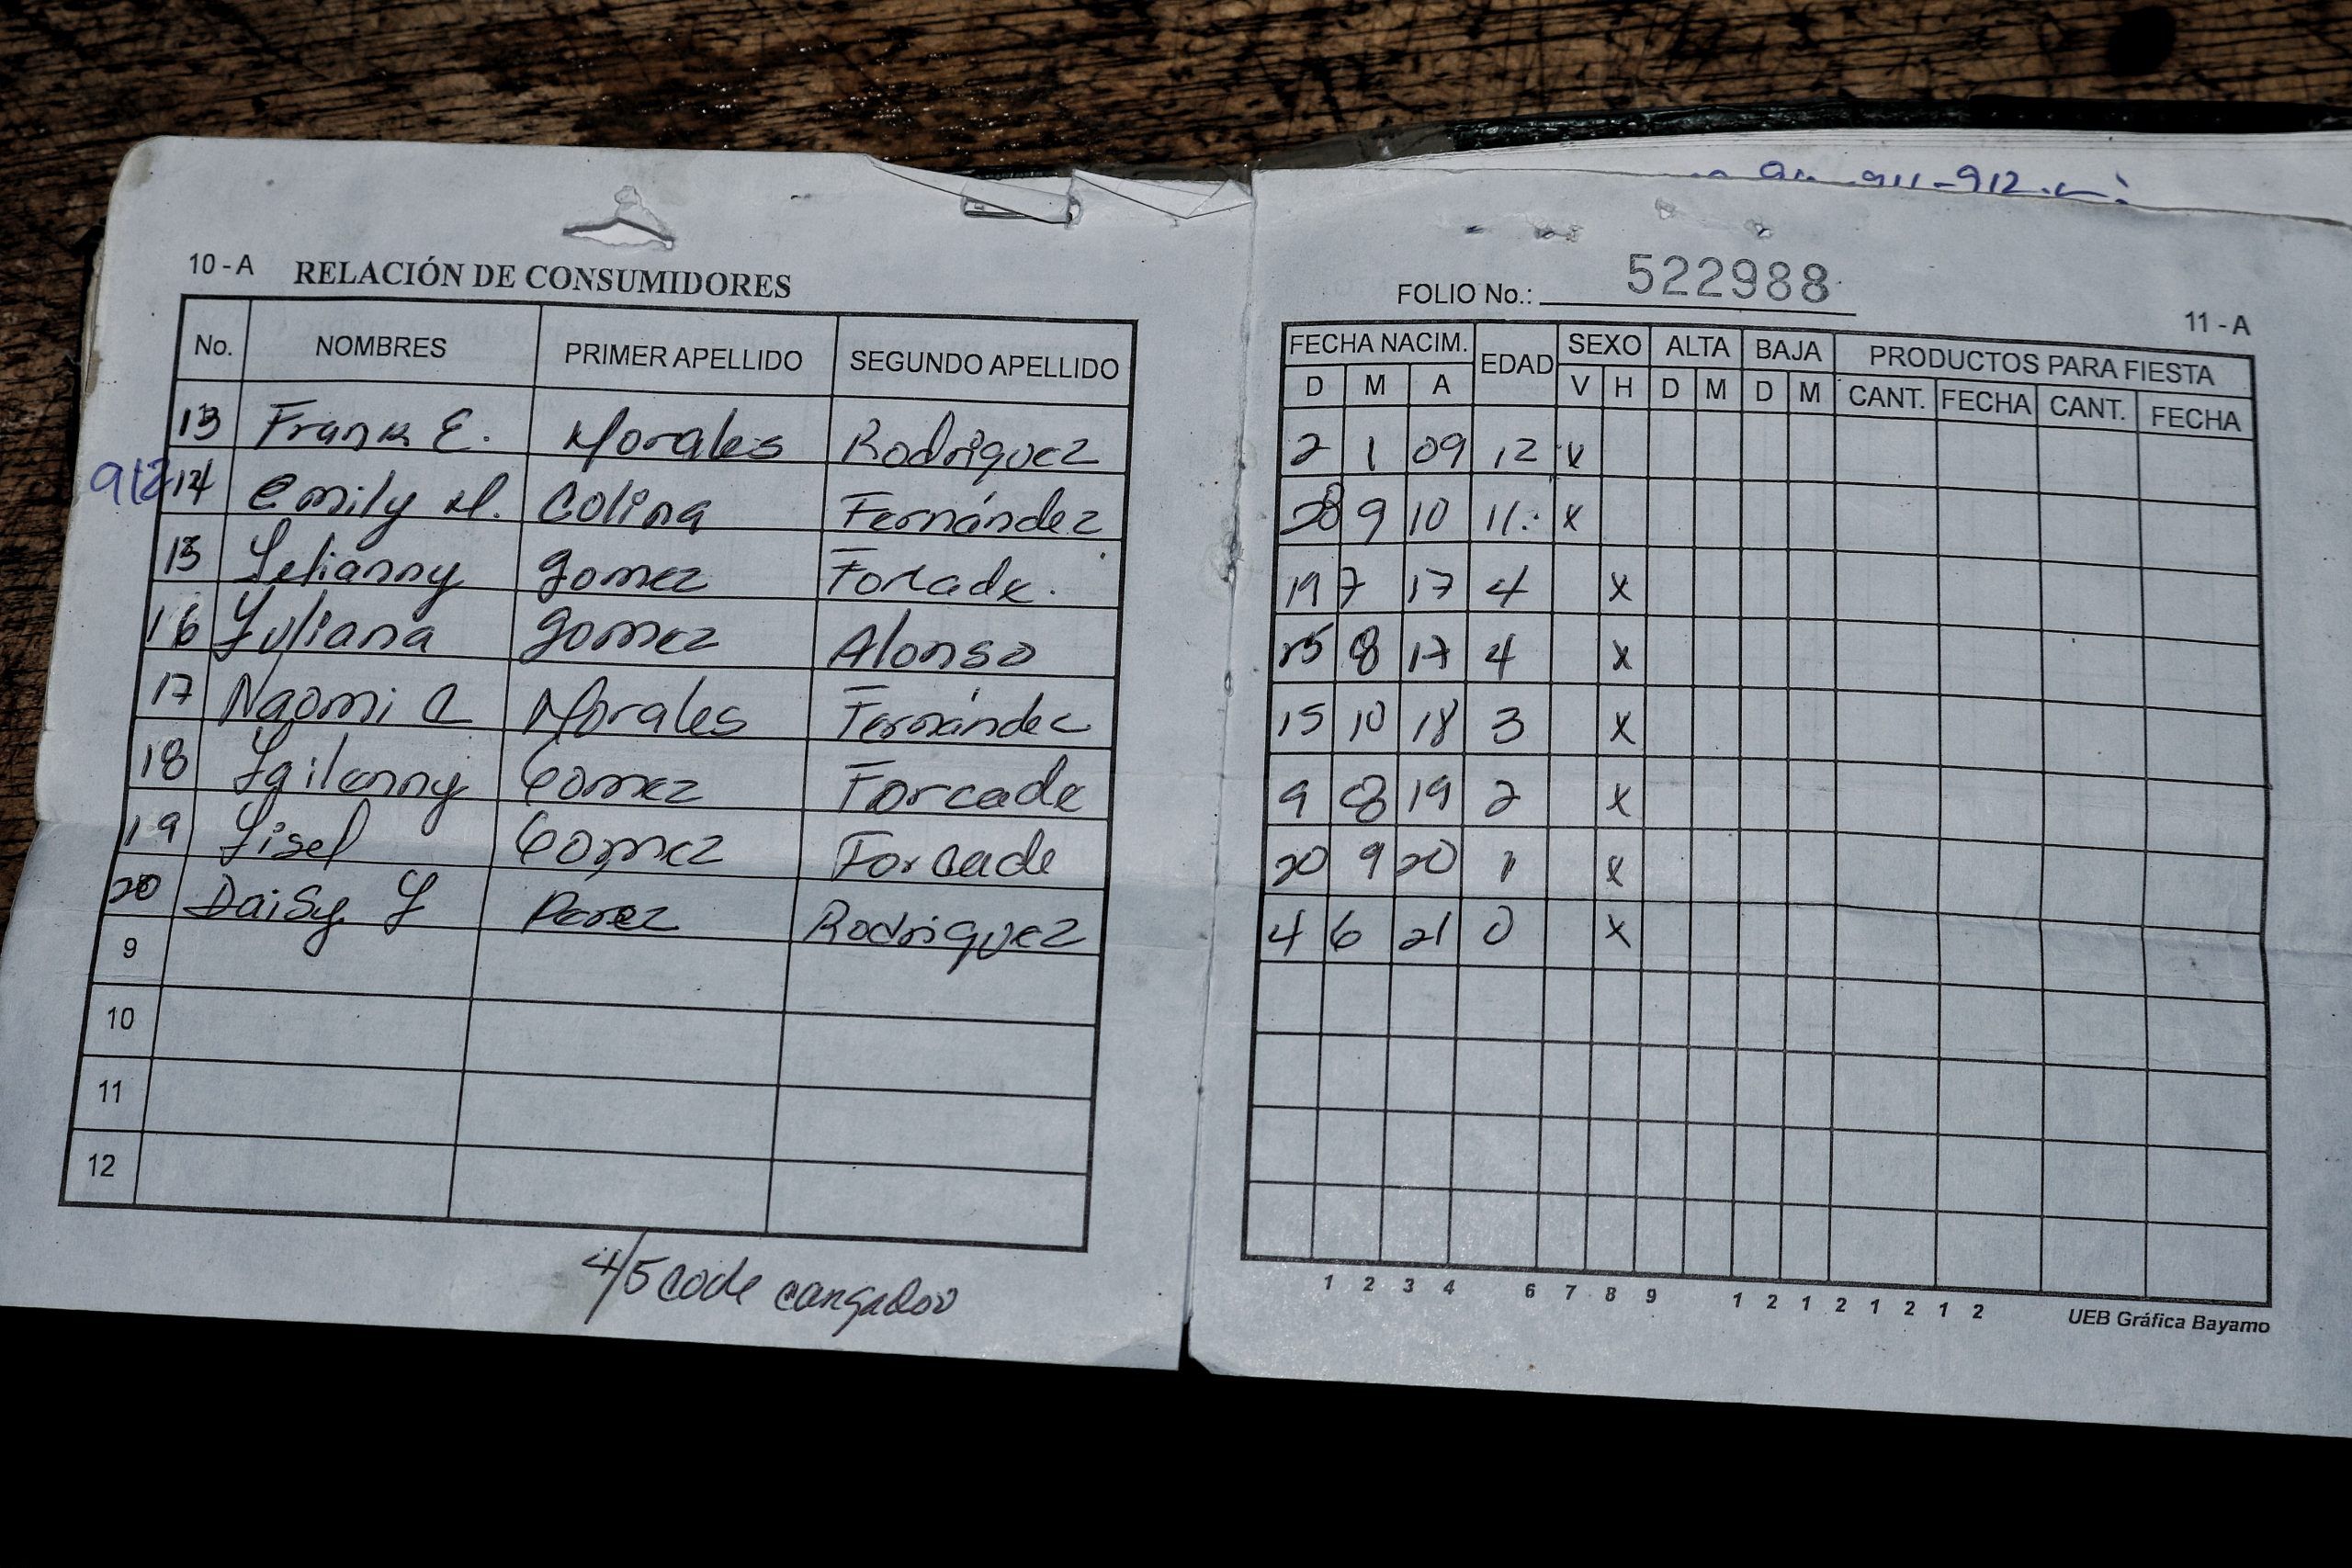 912
10 - A RELACIÓN DE CONSUMIDORES
No. NOMBRES PRIMER APELLIDO SEGUNDO APELLIDO
13 Frank E. Morales Rodriguez
912 14 Emily M. Colina Fernández
15 Yelianny Gomez Forcade.
16 Yuliana Gomez Alonso
17 Naomi C Morales Fernández
18 Yailanny Gomez Forcade
19 Yisel Gomez Forcade
20 Daisy Y Perez Rodriguez
9
10
11
12
4/5 code cargador
FOLIO No.: 522988
11 - A
FECHA NACIM. EDAD SEXO ALTA BAJA PRODUCTOS PARA FIESTA
D M A V H D M D M CANT. FECHA CANT. FECHA
2 1 09 12 x
28 9 10 11 x
19 7 17 4 x
25 8 17 4 x
15 10 18 3 x
9 8 19 2 x
20 9 20 1 x
4 6 21 0 x
1 2 3 4 6 7 8 9 1 2 1 2 1 2 1 2
UEB Gráfica Bayamo